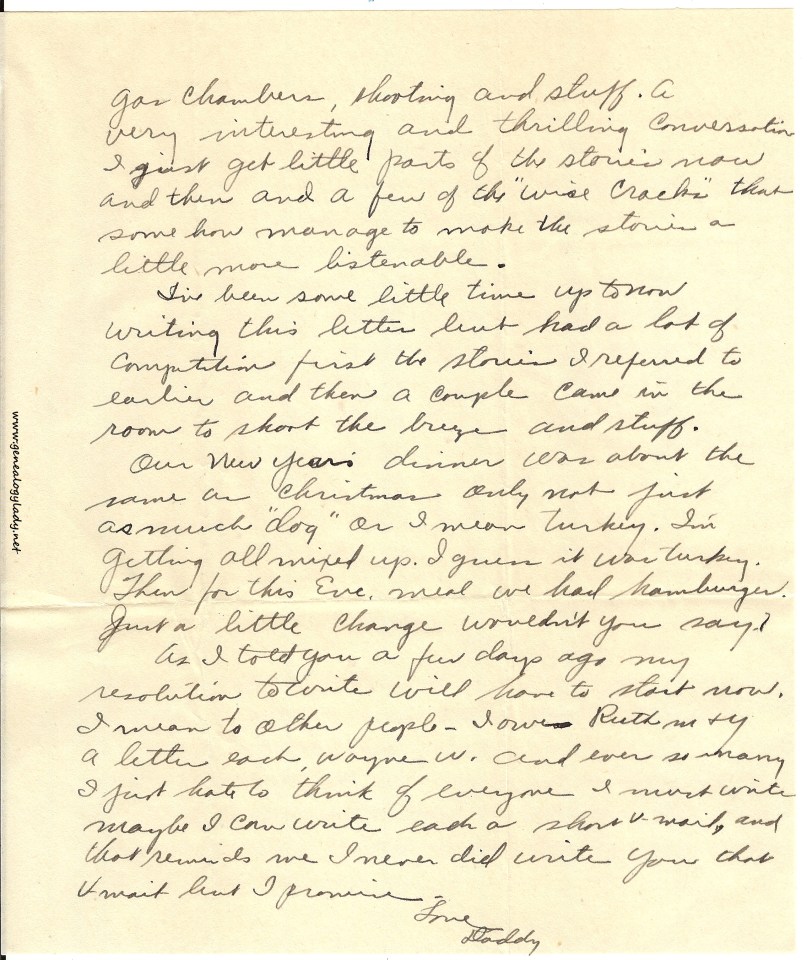 gas chambers, shooting and stuff. A
very interesting and thrilling conversation
I just get little parts of the stories now
and then and a few of the "wise cracks" that
some how manage to make the stories a
little more listenable.
I've been some little time up to now
writing this letter but had a lot of
competition first the stories I referred to
earlier and then a couple came in the
room to shoot the breeze and stuff.
Our New Years dinner was about the
same as Christmas only not just
as much "dog" or I mean turkey. I'm
getting all mixed up. I guess it was turkey.
Then for this Eve. meal we had hamburger.
Just a little change wouldn't you say?
As I told you a few days ago my
resolution to write will have to start now.
I mean to other people - I owe Ruth M + Y
a letter each, Wayne W. and ever so many
I just hate to think of everyone I must write
maybe I can write each a short V-mail, and
that reminds me I never did write you that
V-mail but I promise -
Love
Daddy
www.genealogylady.net